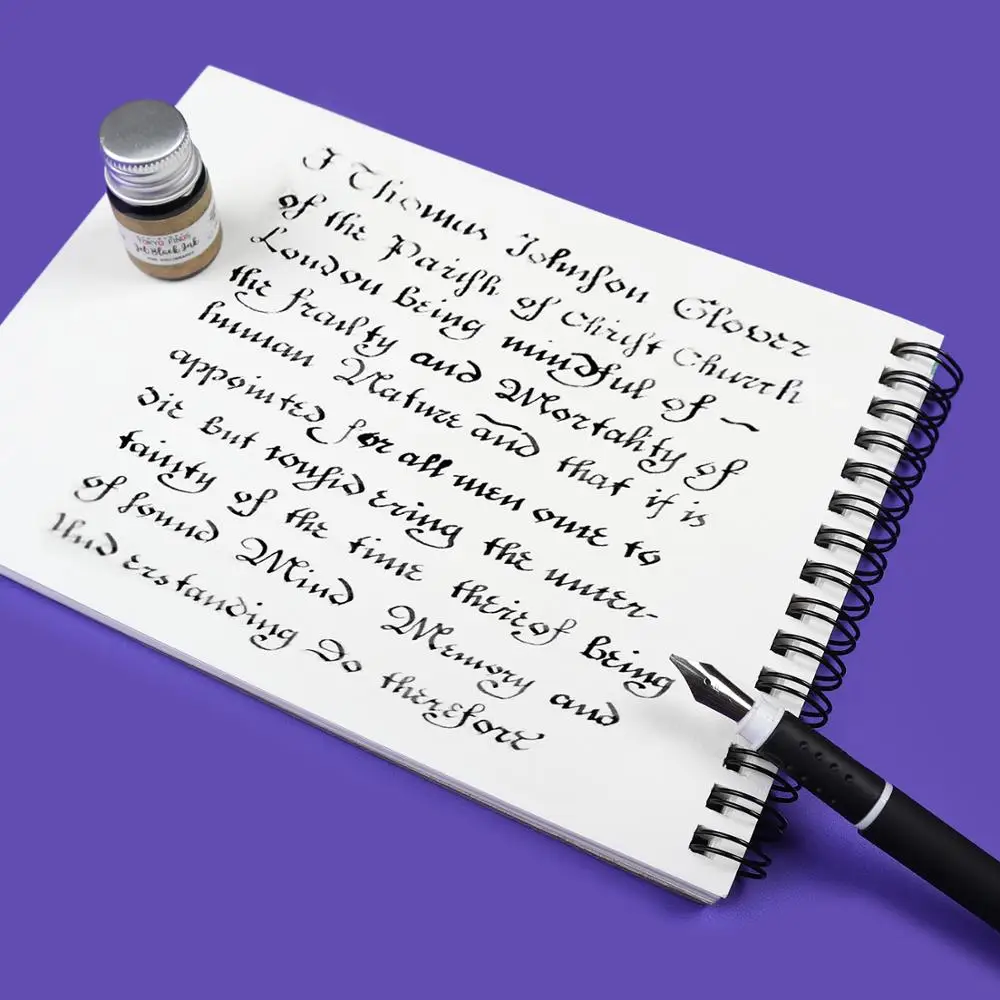 I Thomas Johnſon Glover
of the Pariſh of Chriſt Church
London being mindful of ~
the frailty and Mortality of
human Nature and that it is
appointed for all men once to
die but conſidering the uncer-
tainty of the time thereof being
of ſound Mind Memory and
Understanding Do therefore
Jet Black Ink